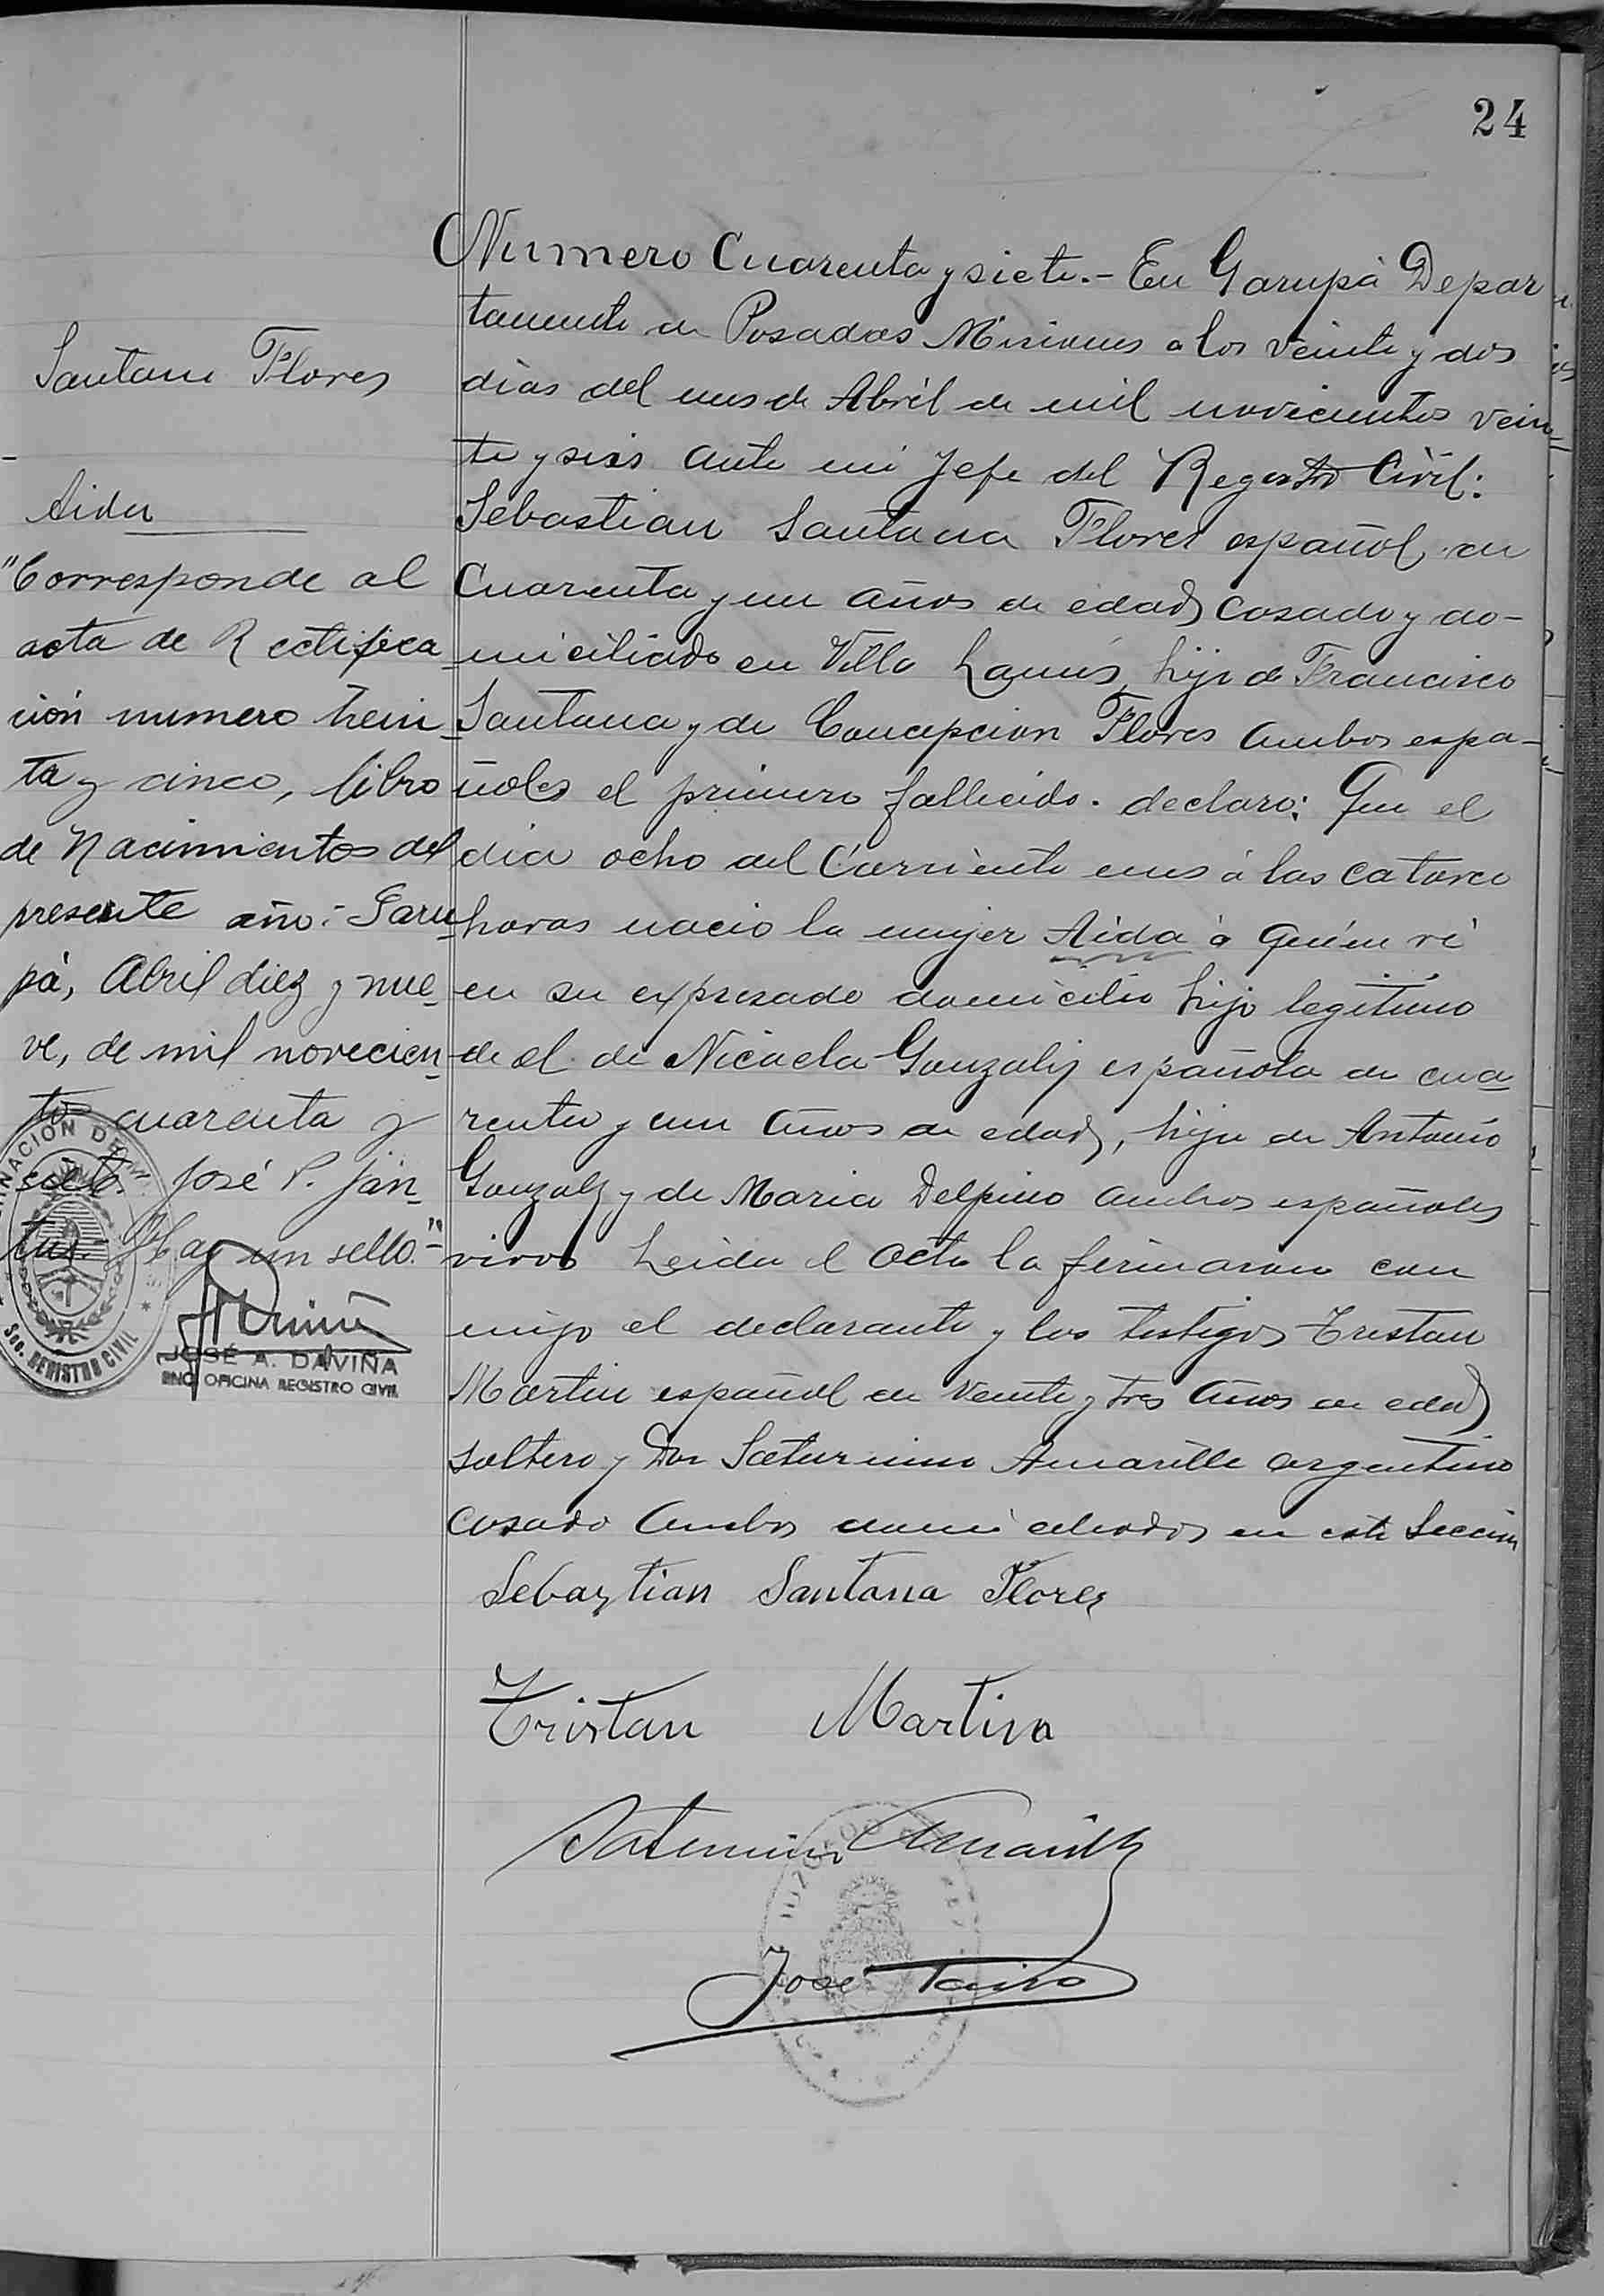 24
Santana Flores
Aida
"Corresponde al
acta de Rectifica
ción numero trein
ta y cinco, libro
de Nacimientos del
presente año:- Garu
pá, Abril diez y nue-
ve, de mil novecien-
tos cuarenta y
siete. José P. Jan-
tus.- Hay un sello."-
Sec. REGISTRO CIVIL
JOSÉ A. DAVIÑA
OFICINA REGISTRO CIVIL
Numero Cuarenta y siete.- En Garupá Depar
tamento de Posadas Misiones a los veinte y dos
dias del mes de Abril de mil novecientos vein-
te y seis ante mi Jefe del Registro Civil:
Sebastian Santana Flores español, de
Cuarenta y un años de edad, casado y do-
miciliado en Villa Lanús, hijo de Francisco
Santana y de Concepcion Flores ambos espa-
ñoles el primero fallecido. declaro: Que el
dia ocho del Corriente mes á las catorce
horas nació la mujer Aida á quien ví
en su expresado domicilio hijo legitimo
de el de Nicacla Gonzalez española de cua
renta y un años de edad, hija de Antonio
Gonzalz y de Maria Delpino ambos españoles
vivos Leida el acta la firmaron con
migo el declarante y los testigos Tristan
Martin español de veinte y tres años de edad
soltero y Don Saturnino Amarilla argentino
casado ambos domiciliados en esta Sección
Sebastian Santana Flores
Tristan Martin
Saturnino Amarilla
Jose